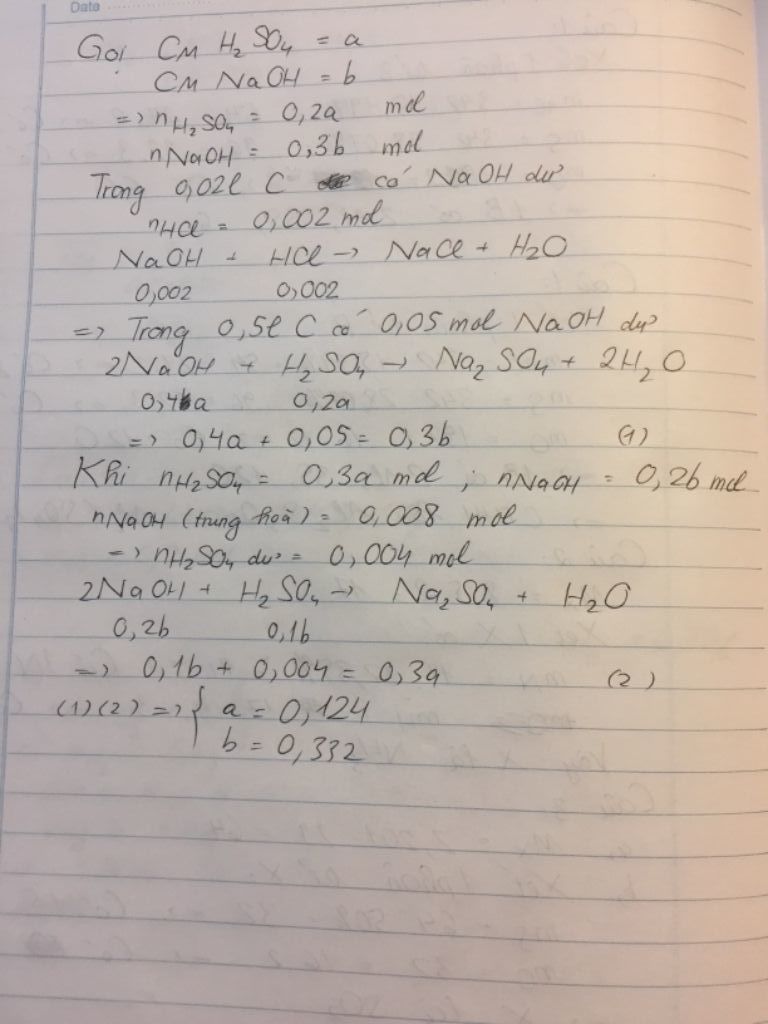 Date
Gọi CM H₂SO₄ = a
CM NaOH = b
=> nH₂SO₄ = 0,2a mol
nNaOH = 0,3b mol
Trong 0,02l C có NaOH dư
nHCl = 0,002 mol
NaOH + HCl → NaCl + H₂O
0,002 0,002
=> Trong 0,5l C có 0,05 mol NaOH dư
2NaOH + H₂SO₄ → Na₂SO₄ + 2H₂O
0,4a 0,2a
=> 0,4a + 0,05 = 0,3b (1)
Khi nH₂SO₄ = 0,3a mol ; nNaOH = 0,2b mol
nNaOH (trung hoà) = 0,008 mol
=> nH₂SO₄ dư = 0,004 mol
2NaOH + H₂SO₄ → Na₂SO₄ + H₂O
0,2b 0,1b
=> 0,1b + 0,004 = 0,3a (2)
(1)(2) => { a = 0,124
b = 0,332